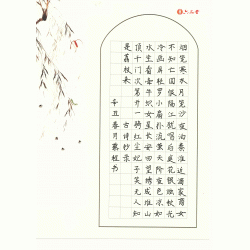 烟笼寒水月笼沙夜泊秦淮近酒家商女
不知亡国恨隔江犹唱后庭花银烛秋光
冷画屏轻罗小扇扑流萤天阶夜色凉如
水坐看牵牛织女星长安回望绣成堆山
顶千门次第开一骑红尘妃子笑无人知
是荔枝来
古诗抄录
辛丑春月
六品堂